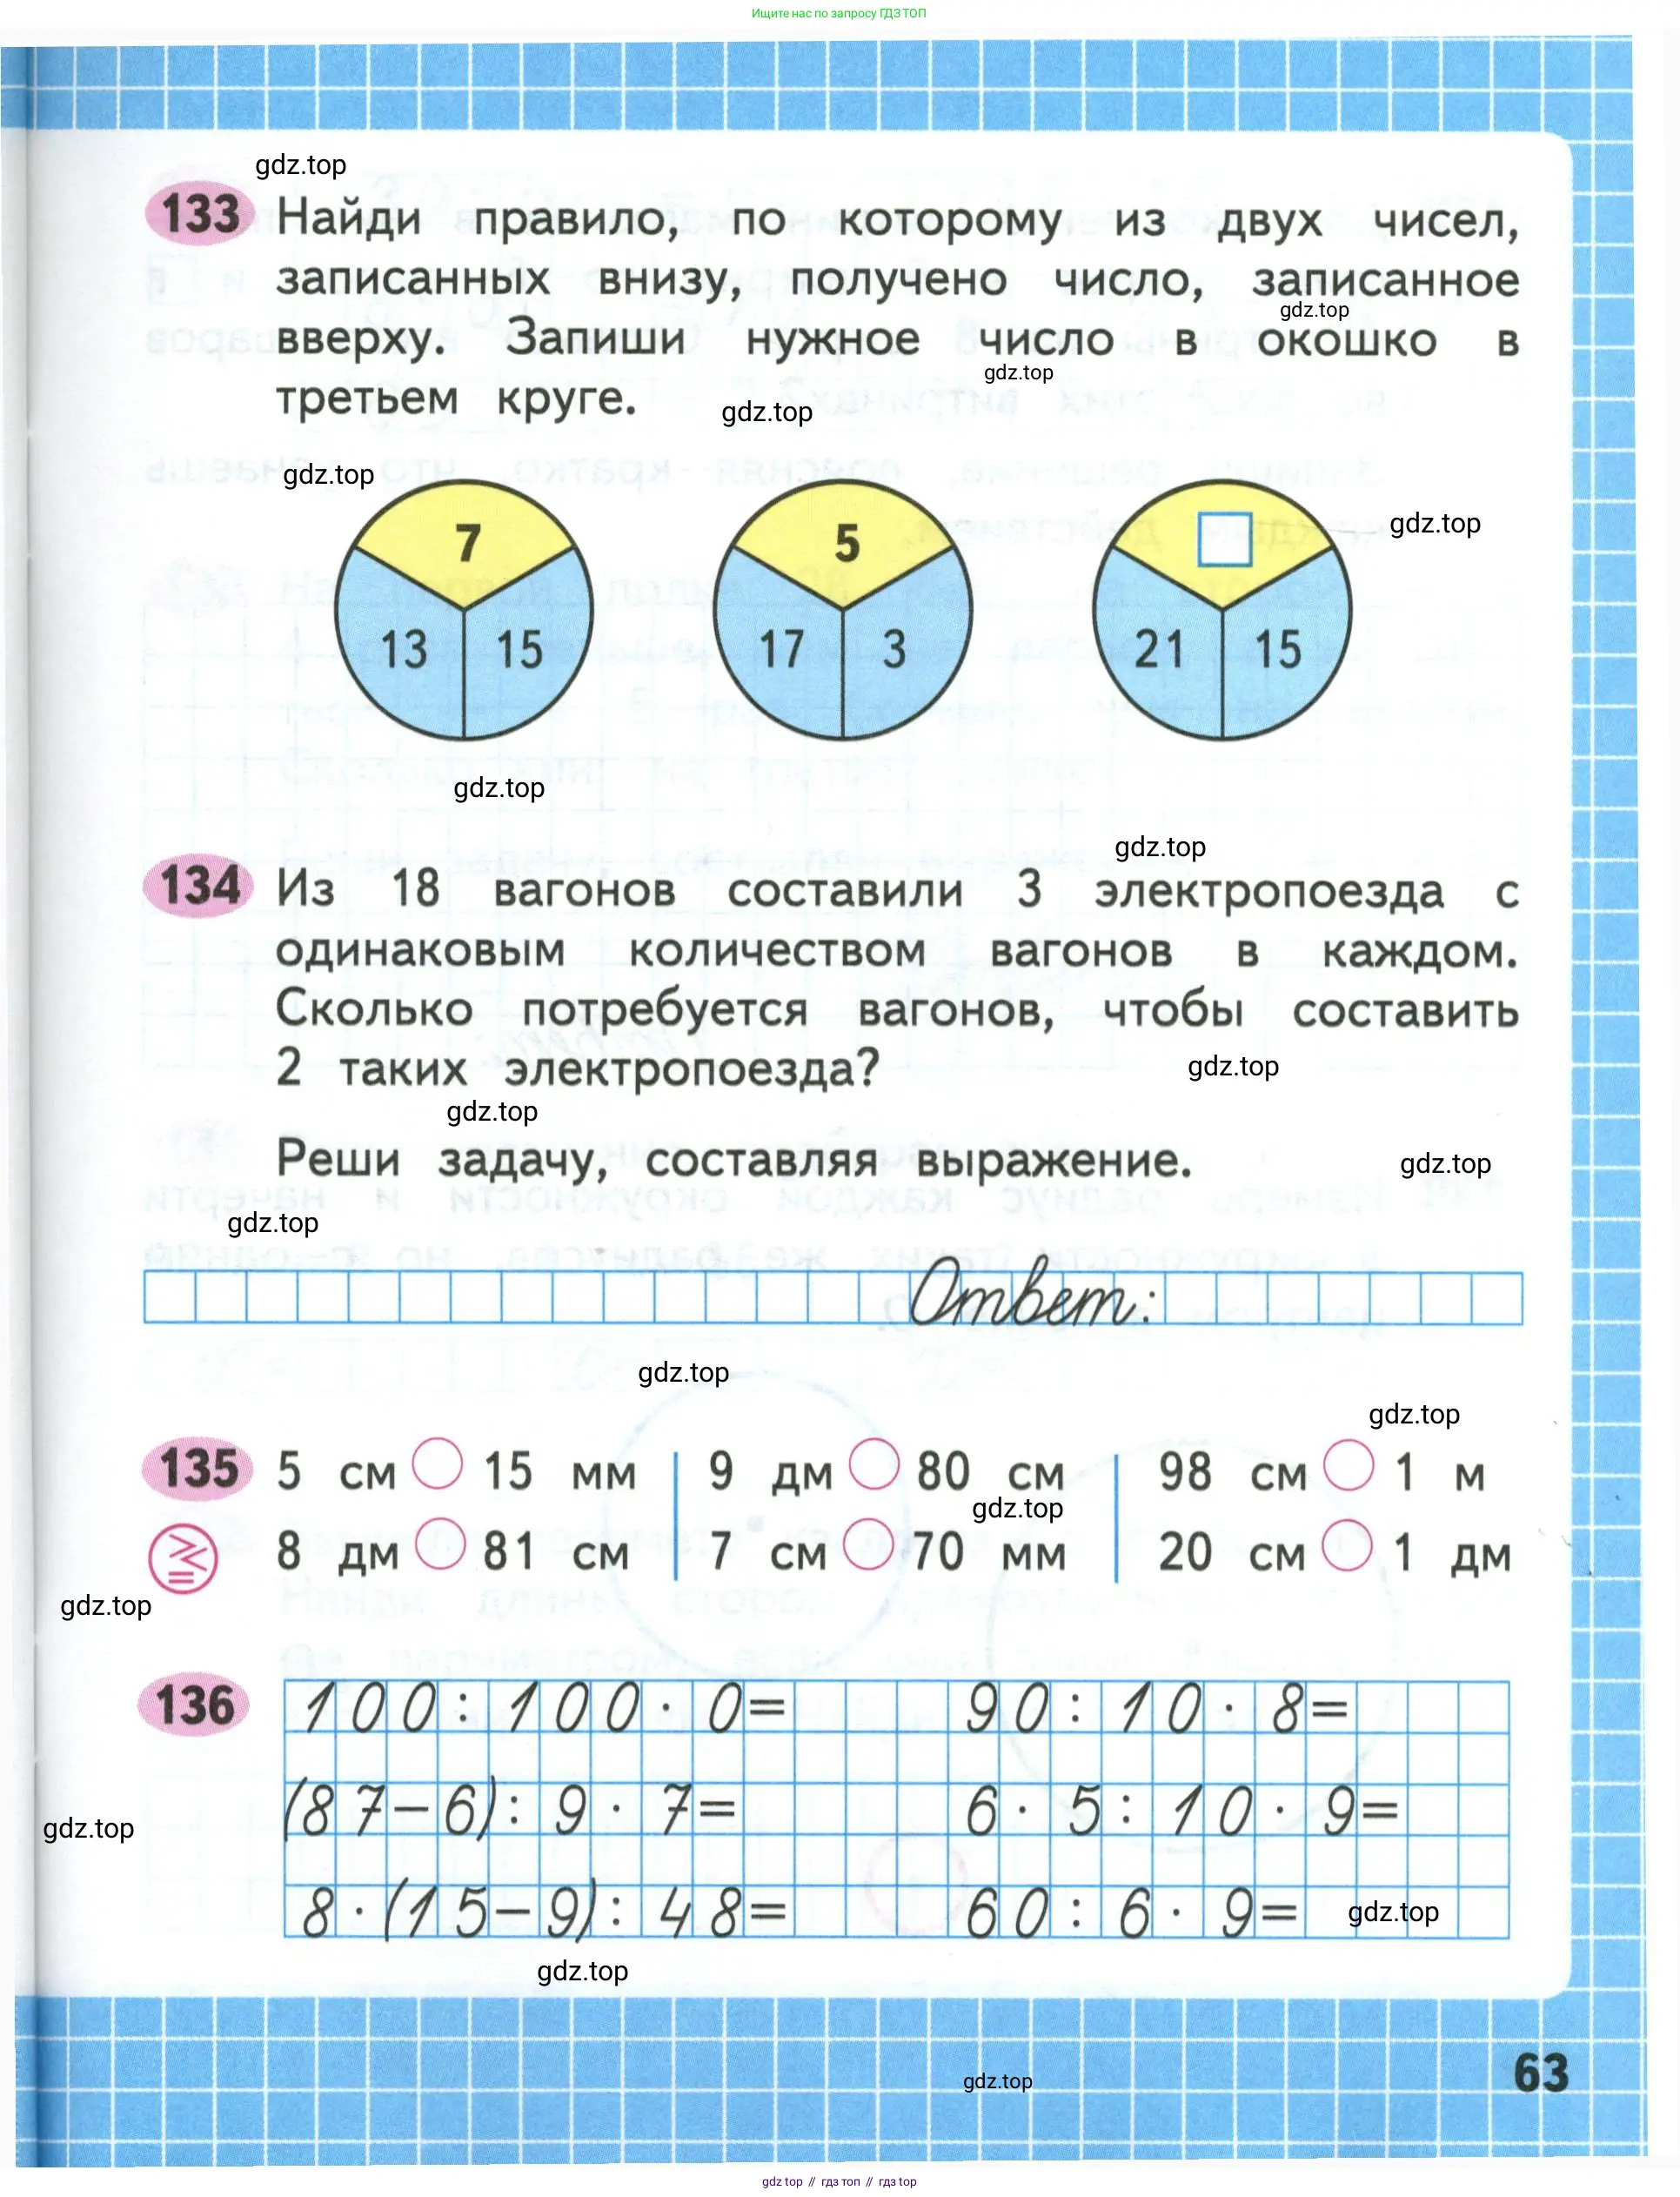 Ищите нас по запросу ГДЗ ТОП
gdz.top
133 Найди правило, по которому из двух чисел,
записанных внизу, получено число, записанное
gdz.top
вверху. Запиши нужное число в окошко в
gdz.top
третьем круге.
gdz.top
gdz.top
gdz.top
7 5
13 15 17 3 21 15
gdz.top
gdz.top
134 Из 18 вагонов составили 3 электропоезда с
одинаковым количеством вагонов в каждом.
Сколько потребуется вагонов, чтобы составить
2 таких электропоезда?
gdz.top
gdz.top
Реши задачу, составляя выражение.
gdz.top
gdz.top
Ответ:
gdz.top
gdz.top
135 5 см 15 мм 9 дм 80 см 98 см 1 м
gdz.top
8 дм 81 см 7 см 70 мм 20 см 1 дм
gdz.top
136 100:100·0= 90:10·8=
(87-6):9·7= 6·5:10·9=
gdz.top
8·(15-9):48= 60:6·9=
gdz.top
gdz.top
63
gdz.top
gdz top // гдз топ // гдз top